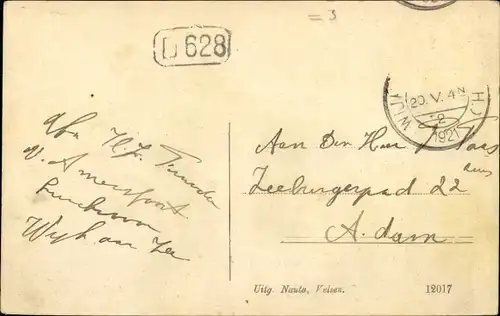 = 3
D 628
WIJK
H.)
20.V. 4N
2
1921
Afz
v. Amersfoort
Wijk aan Zee
Aan Den Heer
Zeeburgerpad 22
huis
A.dam
Uitg. Nauta, Velsen.
12017